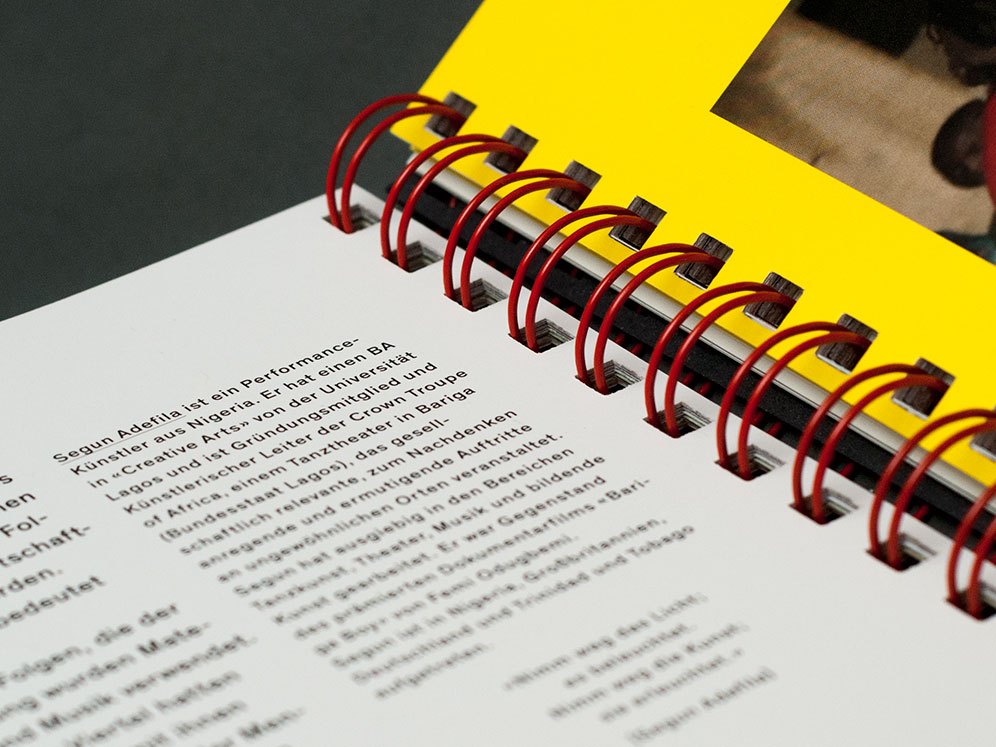 s
en
Fol-
tschaft-
rden.
bedeutet
Folgen, die der
ng worden Mate-
nd Musik verwendet.
Viertel hatten
mit ihnen
er Men-
Segun Adefila ist ein Performance-
Künstler aus Nigeria. Er hat einen BA
in «Creative Arts» von der Universität
Lagos und ist Gründungsmitglied und
Künstlerischer Leiter der Crown Troupe
of Africa, einem Tanztheater in Bariga
(Bundesstaat Lagos), das gesell-
schaftlich relevante, zum Nachdenken
anregende und ermutigende Auftritte
an ungewöhnlichen Orten veranstaltet.
Segun hat ausgiebig in den Bereichen
Tanzkunst, Theater, Musik und bildende
Kunst gearbeitet. Er war Gegenstand
des prämierten Dokumentarfilms «Bari-
ga Boy» von Femi Odugbemi.
Segun ist in Nigeria, Großbritannien,
Deutschland und Trinidad and Tobago
aufgetreten.
«Nimm weg das Licht;
es beleuchtet.
Nimm weg die Kunst;
sie erleuchtet.»
(Segun Adefila)